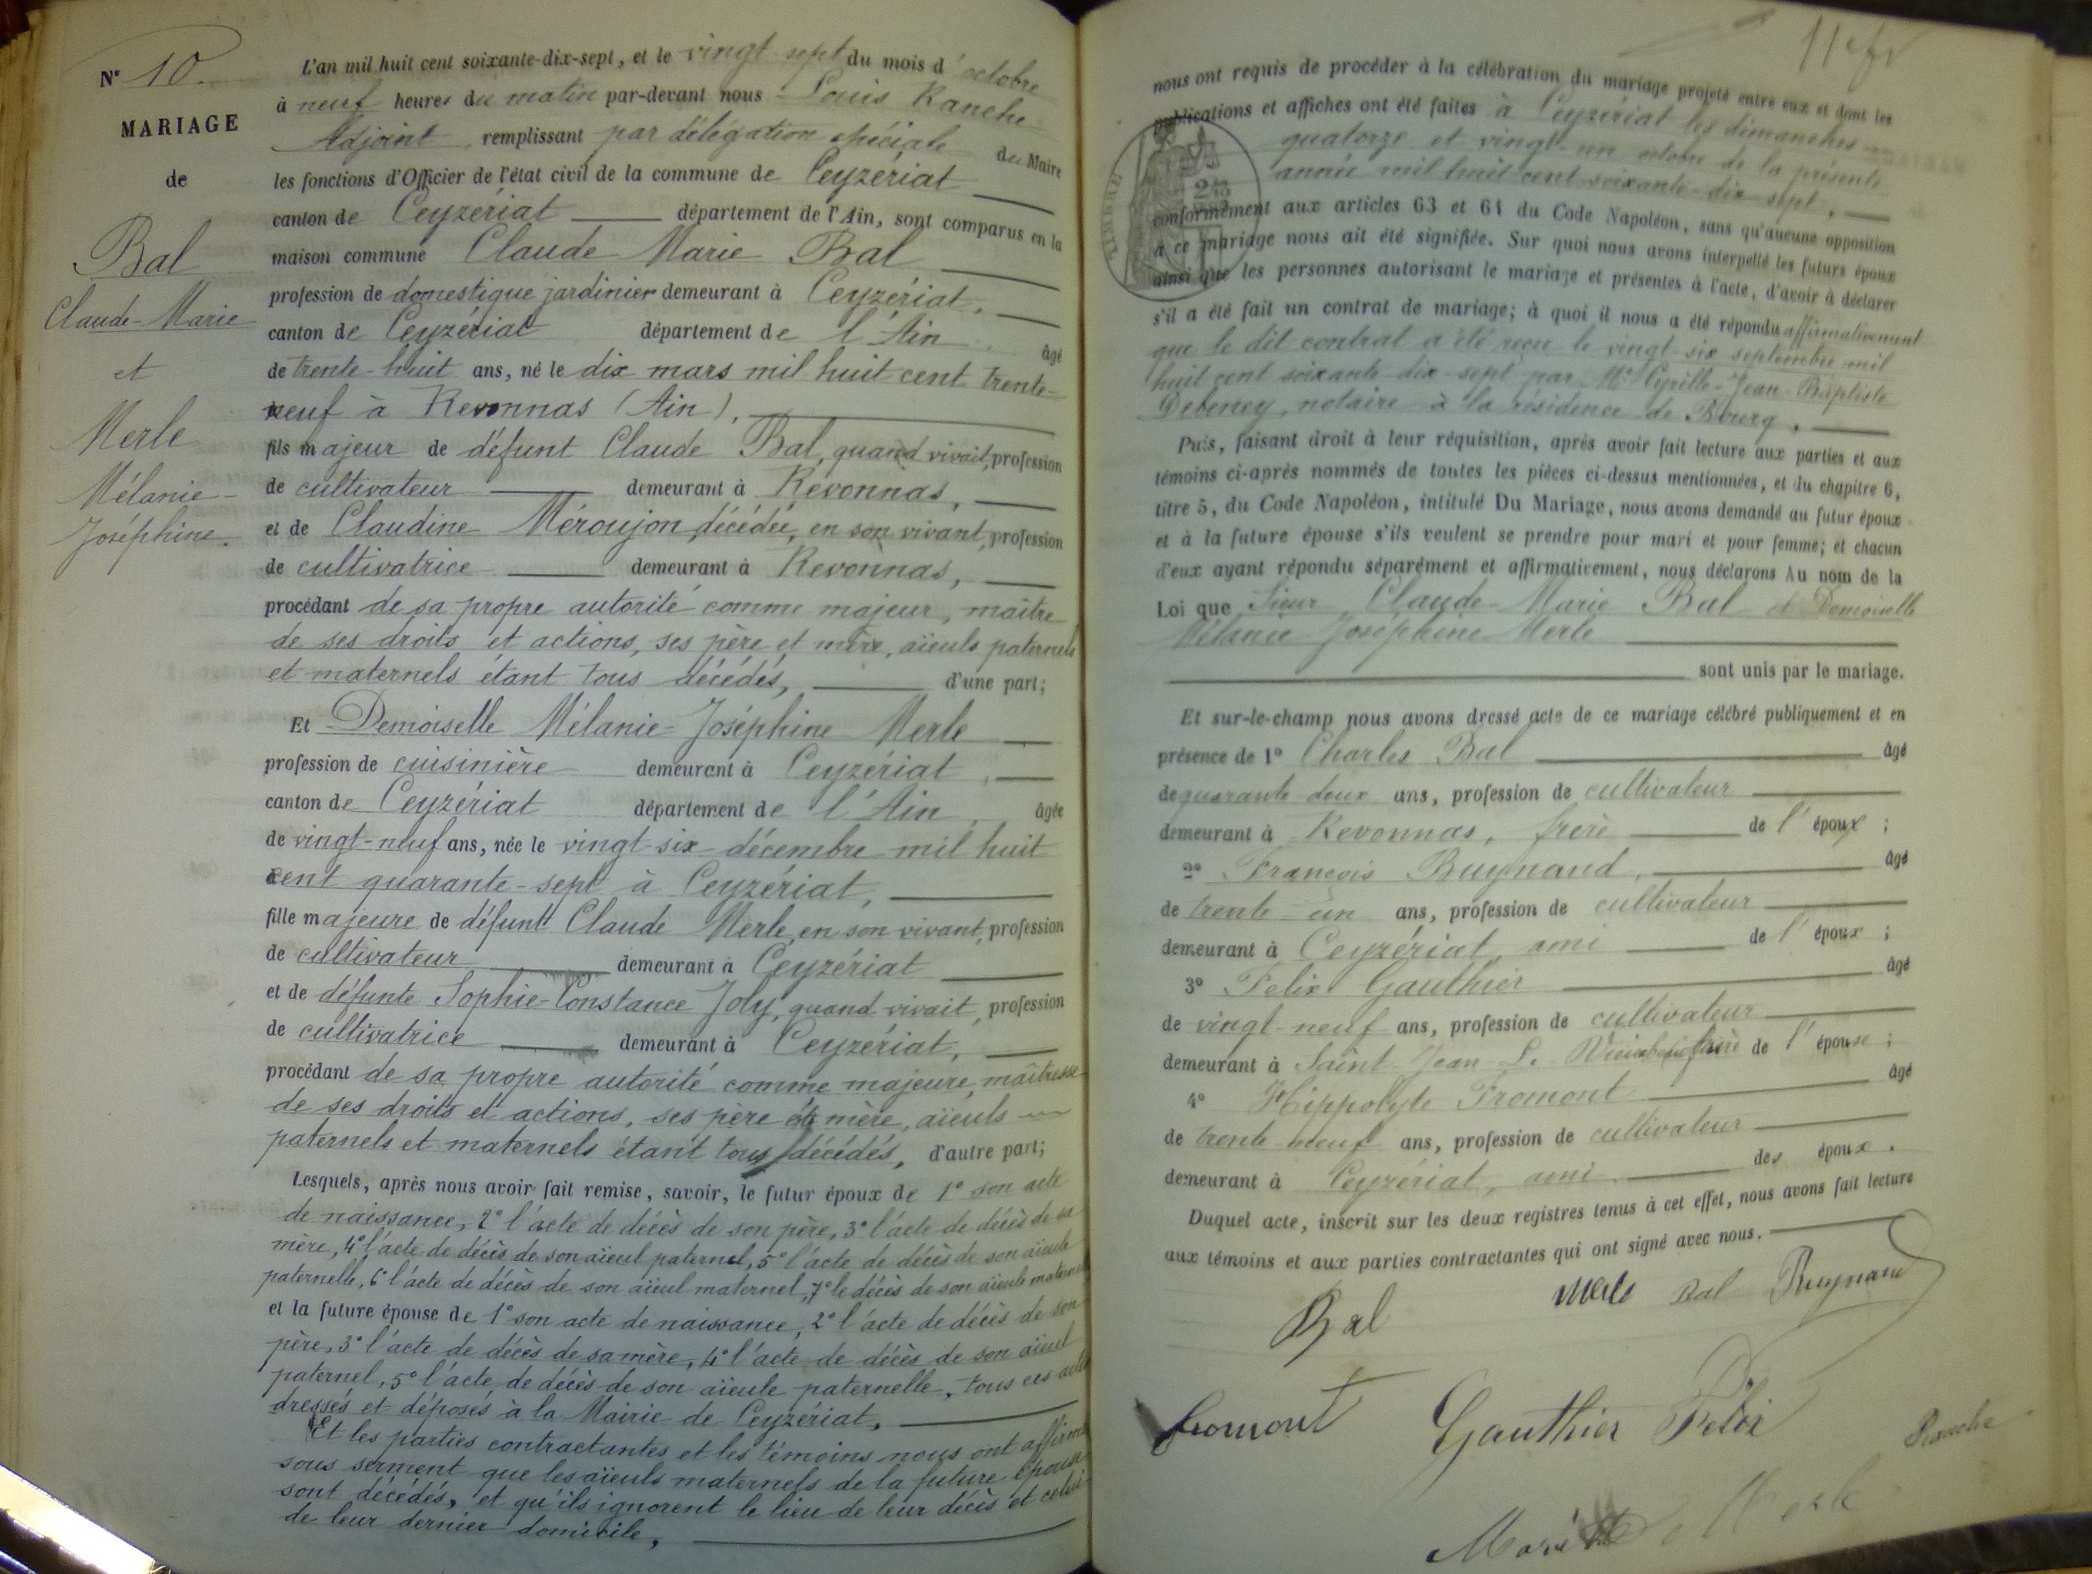 Nº 10.
MARIAGE
de
Bal
Claude-Marie
et
Merle
Mélanie-
Joséphine.
L'an mil huit cent soixante-dix-sept, et le vingt sept du mois d'octobre
à neuf heures du matin par-devant nous Louis Ranche
Adjoint, remplissant par délégation spéciale du Maire
les fonctions d'Officier de l'état civil de la commune de Ceyzériat
canton de Ceyzériat département de l'Ain, sont comparus en la
maison commune Claude Marie Bal
profession de domestique jardinier demeurant à Ceyzériat,
canton de Ceyzériat département de l'Ain, âgé
de trente-huit ans, né le dix mars mil huit cent trente-
neuf à Revonnas (Ain),
fils majeur de défunt Claude Bal, quand vivait, profession
de cultivateur demeurant à Revonnas,
et de Claudine Méroujon, décédée, en son vivant, profession
de cultivatrice demeurant à Revonnas,
procédant de sa propre autorité comme majeur, maître
de ses droits et actions, ses père et mère, aïeuls paternels
et maternels étant tous décédés, d'une part;
Et Demoiselle Mélanie-Joséphine Merle
profession de cuisinière demeurant à Ceyzériat,
canton de Ceyzériat département de l'Ain, âgée
de vingt-neuf ans, née le vingt-six décembre mil huit
cent quarante-sept à Ceyzériat,
fille majeure de défunt Claude Merle, en son vivant, profession
de cultivateur demeurant à Ceyzériat
et de défunte Sophie-Constance Joly, quand vivait, profession
de cultivatrice demeurant à Ceyzériat,
procédant de sa propre autorité comme majeure, maîtresse
de ses droits et actions, ses père et mère, aïeuls
paternels et maternels étant tous décédés, d'autre part;
Lesquels, après nous avoir fait remise, savoir, le futur époux de 1º son acte
de naissance, 2º l'acte de décès de son père, 3º l'acte de décès de sa
mère, 4º l'acte de décès de son aïeul paternel, 5º l'acte de décès de son aïeule
paternelle, 6º l'acte de décès de son aïeul maternel, 7º le décès de son aïeule maternelle
et la future épouse de 1º son acte de naissance, 2º l'acte de décès de son
père, 3º l'acte de décès de sa mère, 4º l'acte de décès de son aïeul
paternel, 5º l'acte de décès de son aïeule paternelle, tous ces actes
dressés et déposés à la Mairie de Ceyzériat,
Et les parties contractantes et les témoins nous ont affirmé
sous serment que les aïeuls maternels de la future épouse
sont décédés, et qu'ils ignorent le lieu de leur décès et celui
de leur dernier domicile,
nous ont requis de procéder à la célébration du mariage projeté entre eux et dont les
publications et affiches ont été faites à Ceyzériat les dimanches
quatorze et vingt-un octobre de la présente
année mil huit cent soixante-dix-sept,
TIMBRE
conformément aux articles 63 et 64 du Code Napoléon, sans qu'aucune opposition
à ce mariage nous ait été signifiée. Sur quoi nous avons interpellé les futurs époux
ainsi que les personnes autorisant le mariage et présentes à l'acte, d'avoir à déclarer
s'il a été fait un contrat de mariage; à quoi il nous a été répondu affirmativement
que le dit contrat a été reçu le vingt-six septembre mil
huit cent soixante-dix-sept par Me Cyrille-Jean-Baptiste
Debeney, notaire à la résidence de Bourg,
Puis, faisant droit à leur réquisition, après avoir fait lecture aux parties et aux
témoins ci-après nommés de toutes les pièces ci-dessus mentionnées, et du chapitre 6,
titre 5, du Code Napoléon, intitulé Du Mariage, nous avons demandé au futur époux
et à la future épouse s'ils veulent se prendre pour mari et pour femme; et chacun
d'eux ayant répondu séparément et affirmativement, nous déclarons Au nom de la
Loi que Sieur Claude-Marie Bal et Demoiselle
Mélanie-Joséphine Merle
sont unis par le mariage.
Et sur-le-champ nous avons dressé acte de ce mariage célébré publiquement et en
présence de 1º Charles Bal âgé
de quarante-deux ans, profession de cultivateur
demeurant à Revonnas, frère de l'époux;
2º François Buynand, âgé
de trente un ans, profession de cultivateur
demeurant à Ceyzériat ami de l'époux;
3º Felix Gauthier âgé
de vingt-neuf ans, profession de cultivateur
demeurant à Saint-Jean-L. de l'épouse;
4º Hippolyte Fromont âgé
de trente-neuf ans, profession de cultivateur
demeurant à Ceyzériat, ami des époux.
Duquel acte, inscrit sur les deux registres tenus à cet effet, nous avons fait lecture
aux témoins et aux parties contractantes qui ont signé avec nous.
Bal Merle Bal Buynand
fromont Gauthier Félix Ranche
Merle